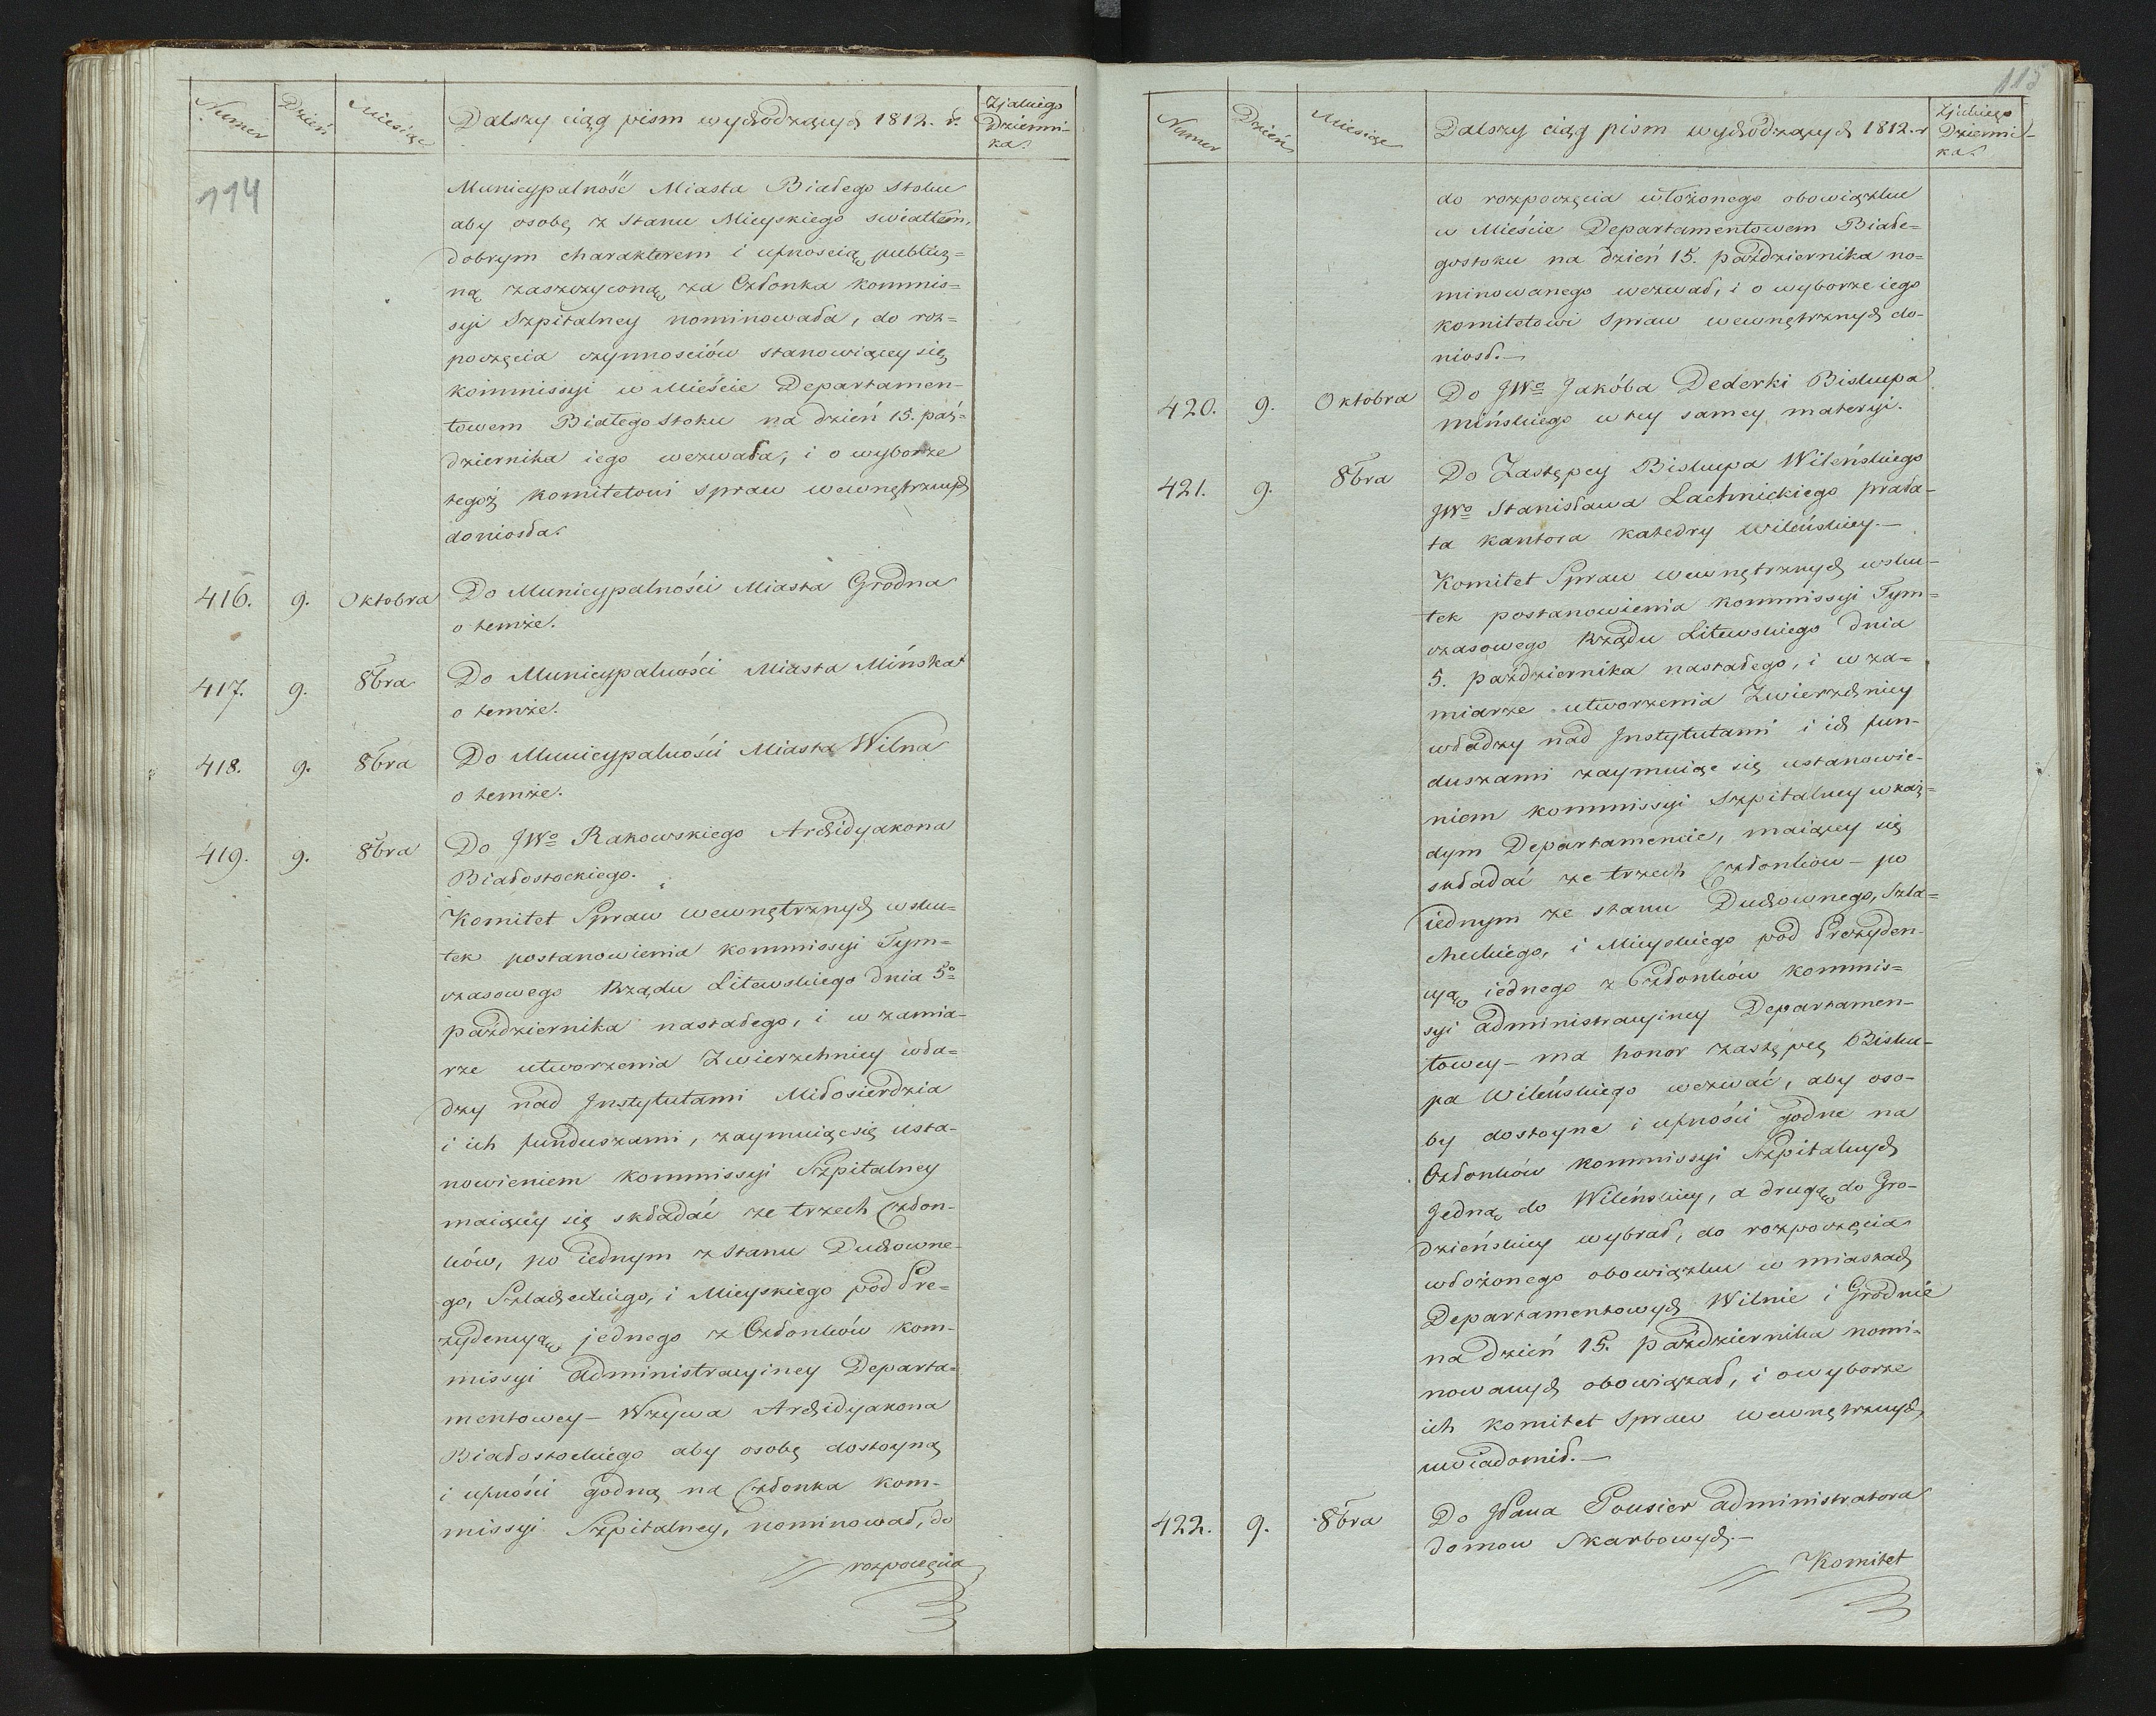 Numer
Dzień
Miesiąc
Dalszy ciąg pism wychodzących 1812. r.
Zjakiego
Dzienni-
ka.
114
Municypalność Miasta Białego Stoku
aby osobę z Stanu Mieyskiego swiatłem,
dobrym charakterem i ufnoscią publicz=
ną zaszczyconą za Członka kommis=
syi Szpitalney nominowała, do roz=
poczęcia czynnosciów stanowiącey się
kommissyi w Mieście Departamen-
towem Białego Stoku na dzień 15. paź-
dziernika iego wezwała, i o wyborze
tegoż komitetowi spraw wewnętrznych
doniosła.
416. 9. Oktobra Do Municypalności Miasta Grodna
o temże.
417. 9. 8bra Do Municypalności Miasta Mińska
o temże.
418. 9. 8bra Do Municypalności Miasta Wilna
o temże.
419. 9. 8bra Do JWo Rakowskiego Archidyakona
Białostockiego.
Komitet Spraw wewnętrznych wsku=
tek postanowienia kommissyi Tym=
czasowego Rządu Litewskiego dnia 5o
października nastałego, i w zamia-
rze utworzenia Zwierzchniey wła=
dzy nad Instytutami Miłosierdzia
i ich funduszami, zaymuiąc się usta-
nowieniem kommissyi Szpitalney
maiącey się składać ze trzech Człon-
ków, po iednym z Stanu Duchowne-
go, Szlacheckiego, i Mieyskiego pod Pre=
zydencyą jednego z Członków kom-
missyi administracyiney Departa=
mentowey – Wzywa Archidyakona
Białostockiego aby osobę dostoyną
i ufności godną na Członka kom-
missyi Szpitalney, nominował, do
rozpoczęcia
115
Numer
Dzień
Miesiąc
Dalszy ciąg pism wychodzących 1812. r
Zjakiego
Dzienni-
ka.
do rozpoczęcia włożonego obowiązku
w Mieście Departamentowem Białe=
gostoku na dzień 15. października no=
minowanego wezwał, i o wyborze iego
komitetowi Spraw wewnętrznych do-
niosł. –
420. 9. Oktobra Do JWo Jakóba Dederki Biskupa
mińskiego w tey samey materyi.
421. 9. 8bra Do Zastępcy Biskupa Wileńskiego
JWo Stanisława Lachnickiego prała-
ta kantora katedry Wileńskiey. –
Komitet Spraw wewnętrznych wsku-
tek postanowienia kommissyi Tym=
czasowego Rządu Litewskiego dnia
5. października nastałego, i w za=
miarze utworzenia Zwierzchniey
władzy nad Instytutami i ich fun-
duszami zaymuiąc się ustanowie-
niem kommissyi Szpitalney w każ=
dym Departamencie, maiącey się
składać ze trzech Członków – po
iednym ze stanu Duchownego, Szla=
checkiego, i Mieyskiego pod Prezyden-
cyą iednego z Członków kommis=
syi administracyiney Departamen-
towey – ma honor zastępcę Bisku-
pa Wileńskiego wezwać, aby oso-
by dostoyne i ufności godne na
Członków kommissyi Szpitalnych
Jedną do Wileńskiey, a drugą do Gro-
dzieńskiey wybrał, do rozpoczęcia
włożonego obowiązku w miastach
Departamentowych Wilnie i Grodnie
na dzień 15. października nomi-
nowanych obowiązał, i o wyborze
ich komitet spraw wewnętrznych
uwiadomił. –
422. 9. 8bra Do JPana Pousier administratora
domow Skarbowych. –
Komitet